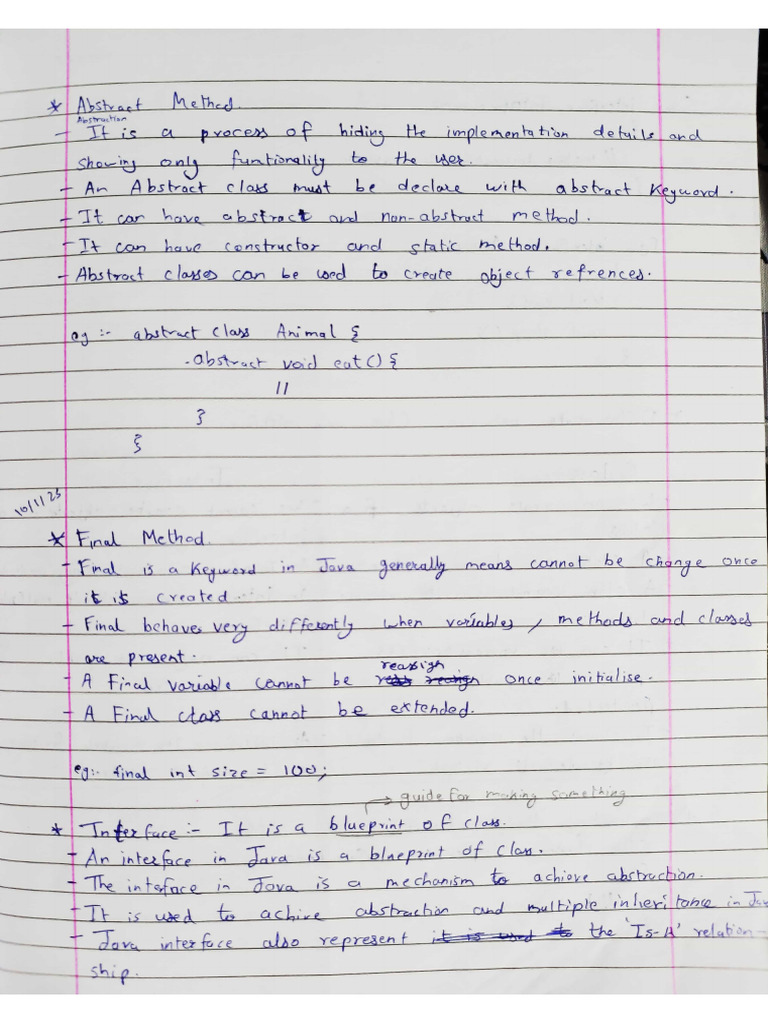 * Abstract Method.
Abstraction
- It is a process of hiding the implementation details and
showing only funtionality to the user.
- An Abstract class must be declare with abstract Keyword.
- It can have abstract and non-abstract method.
- It can have constructor and static method.
- Abstract classes can be used to create object refrences.
eg :- abstract class Animal {
abstract void eat() {
//
}
}
10/11/23
* Final Method.
- Final is a Keyword in Java generally means cannot be change once
it is created.
- Final behaves very differently when variables, methods and classes
are present.
reassign
- A Final variable cannot be once initialise.
- A Final class cannot be extended.
eg:- final int size = 100;
→ guide for making something
* Interface :- It is a blueprint of class.
- An interface in Java is a blueprint of class.
- The interface in Java is a mechanism to achieve abstraction.
- It is used to achive abstraction and multiple inheritance in Jav
- Java interface also represent it is used to the 'Is-A' relation-
ship.